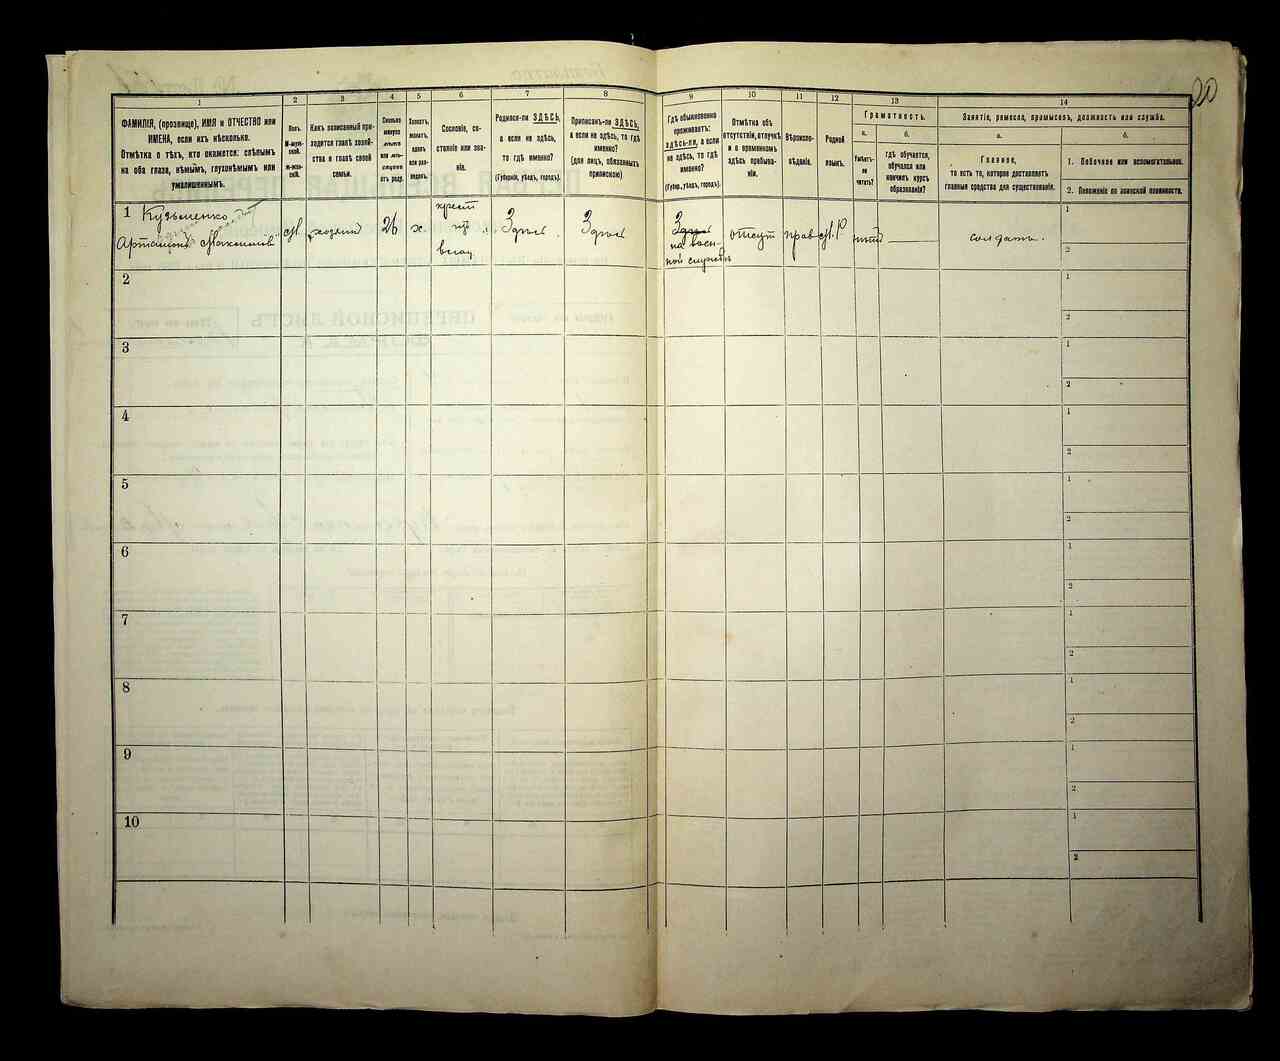 20
1
2
3
4
5
6
7
8
9
10
11
12
13
14
ФАМИЛІЯ, (прозвище), ИМЯ и ОТЧЕСТВО или
ИМЕНА, если ихъ нѣсколько.
Отмѣтка о тѣхъ, кто окажется: слѣпымъ
на оба глаза, нѣмымъ, глухонѣмымъ или
умалишеннымъ.
Полъ.
М-муж-
ской.
Ж-жен-
скій.
Какъ записанный при-
ходится главѣ хозяй-
ства и главѣ своей
семьи.
Сколько
минуло
лѣтъ
или мѣ-
сяцевъ
отъ роду.
Холостъ,
женатъ,
вдовъ
или раз-
веденъ.
Сословіе, со-
стояніе или зва-
ніе.
Родился-ли ЗДѢСЬ,
а если не здѣсь,
то гдѣ именно?
(Губернія, уѣздъ, городъ).
Приписанъ-ли ЗДѢСЬ,
а если не здѣсь, то гдѣ
именно?
(для лицъ, обязанныхъ
припискою)
Гдѣ обыкновенно
проживаетъ:
здѣсь-ли, а если
не здѣсь, то гдѣ
именно?
(Губер., уѣздъ, городъ).
Отмѣтка объ
отсутствіи, отлучкѣ
и о временномъ
здѣсь пребыва-
ніи.
Вѣроиспо-
вѣданіе.
Родной
языкъ.
Грамотность.
а.
Умѣетъ-
ли
читать?
б.
гдѣ обучается,
обучался или
кончилъ курсъ
образованія?
Занятіе, ремесло, промыселъ, должность или служба.
а.
Главное,
то есть то, которое доставляетъ
главныя средства для существованія.
б.
1. Побочное или вспомогательное.
2. Положеніе по воинской повинности.
1 Кузьменко
Максимов
М
хозяин
26
х
крест
из
влад
Здѣсь
Здѣсь
Здѣсь
на воен-
ной службѣ
отсут
прав
М.Р
солдатъ.
1
2
2
1
2
3
1
2
4
1
2
5
1
2
6
1
2
7
1
2
8
1
2
9
1
2
10
1
2